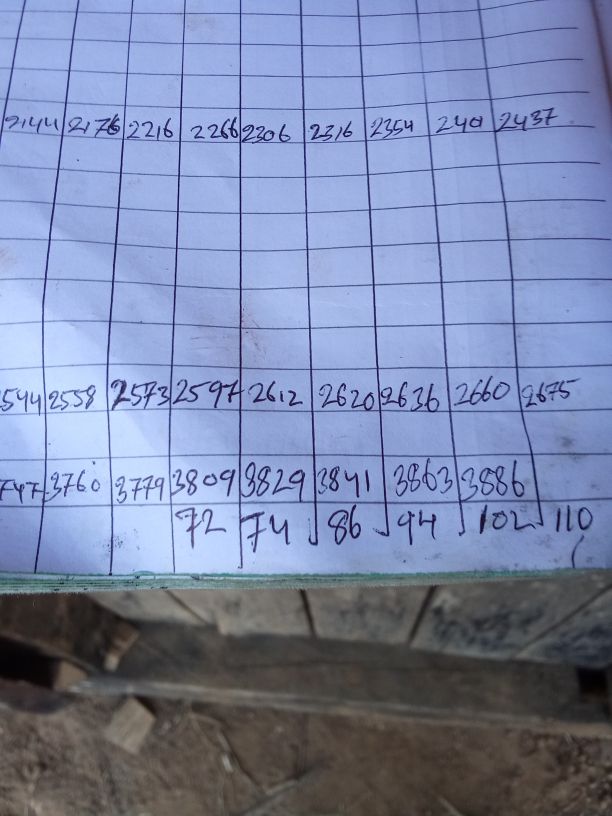 2144 2176 2216 2266 2306 2316 2354 240 2437
544 2558 2573 2597 2612 2620 2636 2660 2675
747 3760 3779 3809 3829 3841 3863 3886
72 74 86 94 102 110